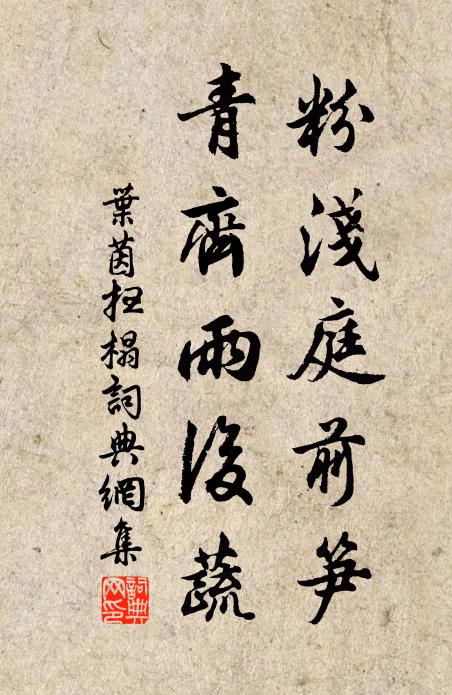 粉淺庭前笋
青齊雨後蔬
葉茵抂榻詞典網集
詞典網印